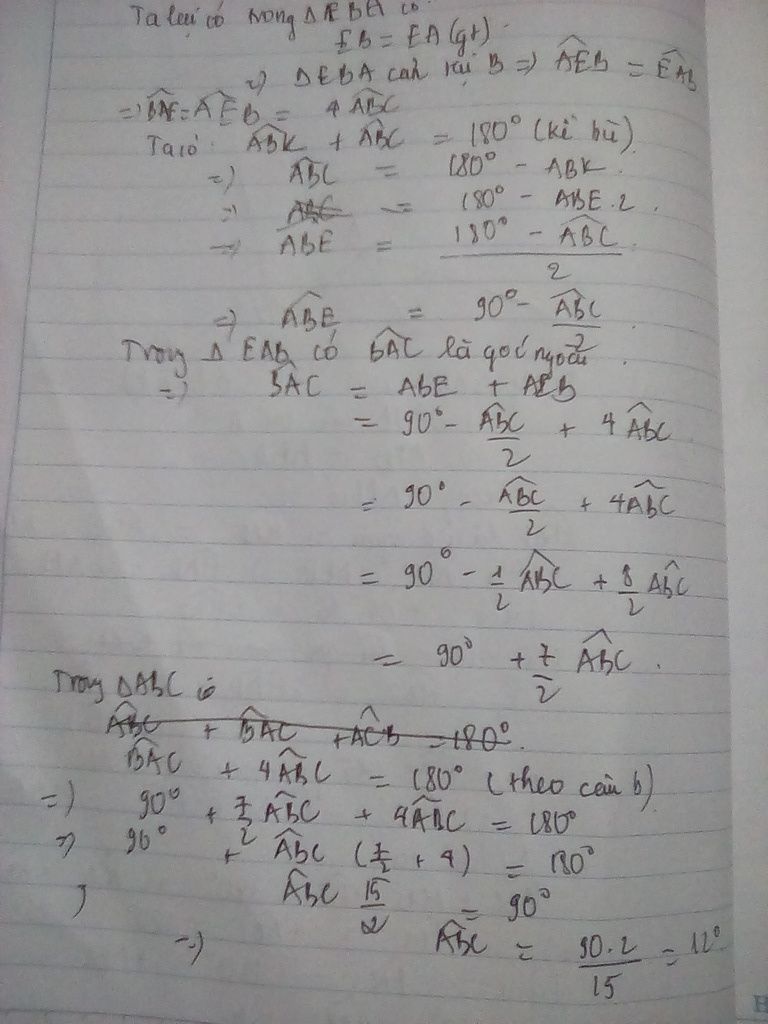 Ta lại có trong ΔEBA có
EB = EA (gt).
=) ΔEBA cân tại B =) AÊB = EÂB
=) BAE = AÊB = 4 ABC
Ta có: ABK + ABC = 180° (kề bù)
=) ABC = 180° - ABK.
=) ABC = 180° - ABE.2.
=) ABE = 180° - ABC / 2
=) ABE = 90° - ABC / 2
Trong Δ EAB có BAC là góc ngoài.
=) BAC = ABE + AEB
= 90° - ABC / 2 + 4 ABC
= 90° - ABC / 2 + 4ABC
= 90° - 1/2 ABC + 8/2 ABC
= 90° + 7/2 ABC.
Trong ΔABC có
ABC + BAC + ACB = 180°.
BAC + 4ABC = 180° (theo câu b)
=) 90° + 7/2 ABC + 4ABC = 180°
=) 90° + ABC (7/2 + 4) = 180°
) ABC 15/2 = 90°
=) ABC = 90.2 / 15 = 12°
H